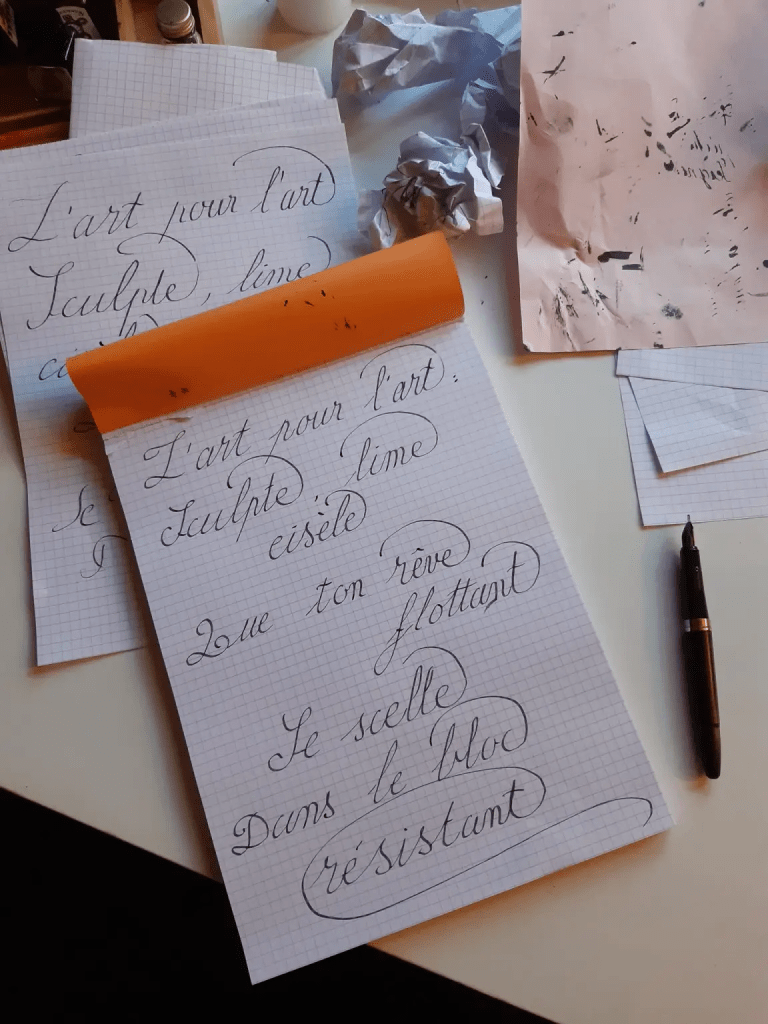 L'art pour l'art
Sculpte, lime
L'art pour l'art :
Sculpte, lime
cisèle
Que ton rêve
flottant
Se scelle
Dans le bloc
résistant